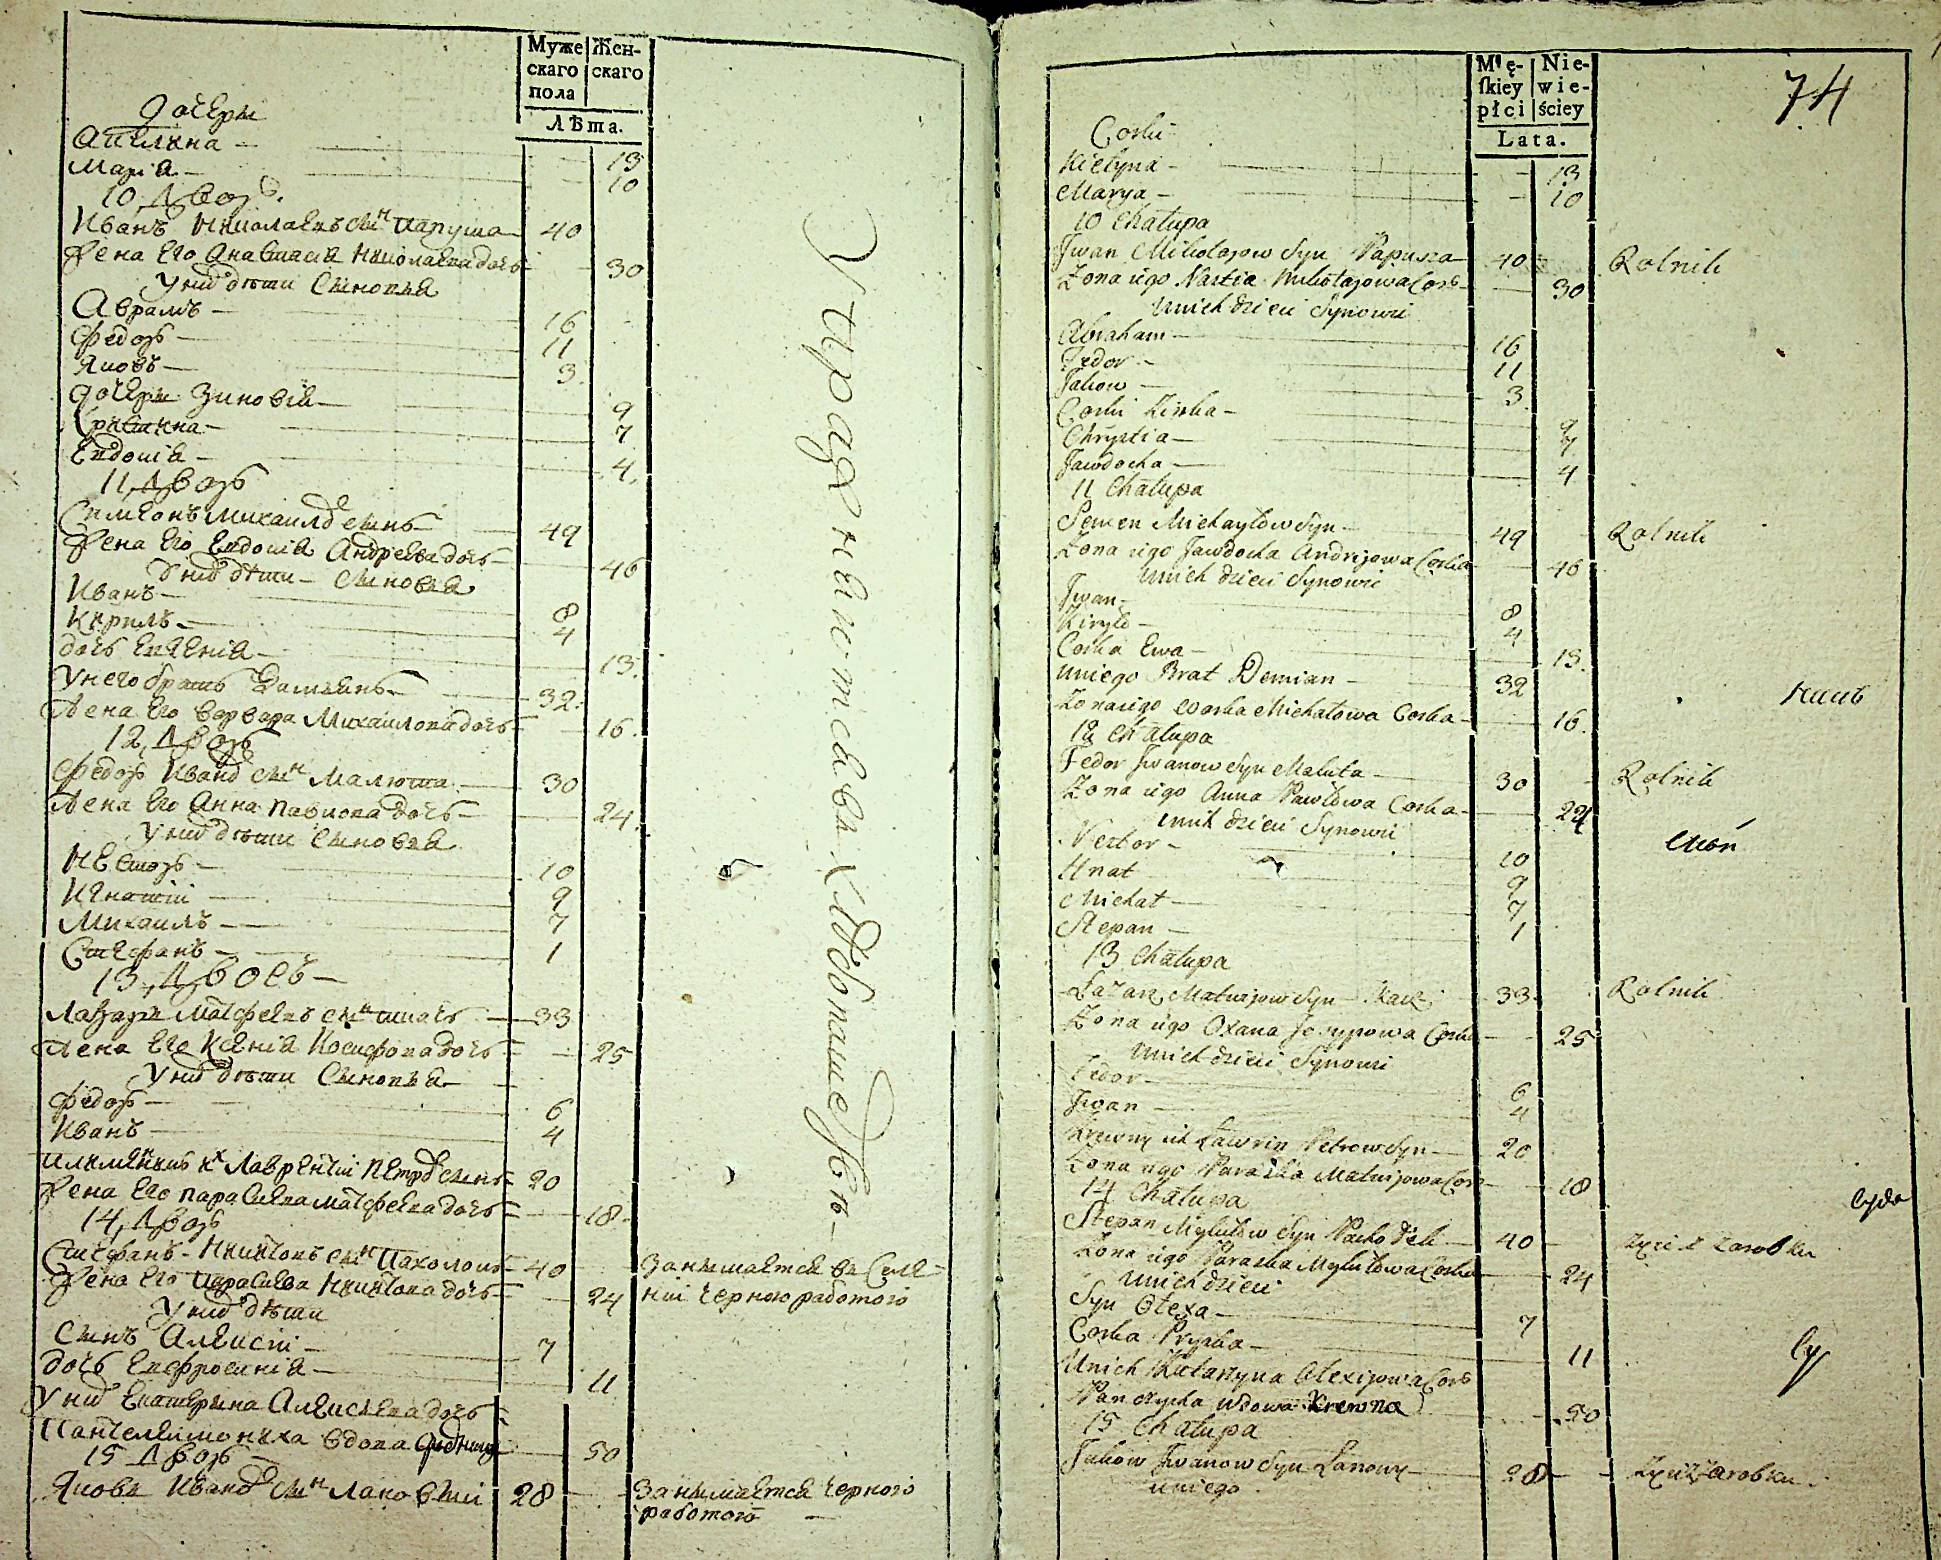 Муже
скаго
пола
Жен-
скаго
Лѣта.
дочери
Марія 10
10 Дворъ
Иванъ Николаевъ сынъ Папуша 40
Жена Его Анастасія Николаева дочь 30
У нихъ дѣти Сыновья
Аврамъ 16
Федоръ 11
Яковъ 3
дочери Зиновія 9
Христина 7
Евдокія 4
11 Дворъ
Симеонъ Михаиловъ сынъ 49
Жена Его Евдокія Андреева дочь 46
У нихъ дѣти Сыновья
Иванъ 8
Кирилъ 4
дочь Евгенія 13
У него братъ Дамианъ 32
Жена Его Варвара Михаилова дочь 16
12 Дворъ
Федоръ Ивановъ сынъ Малюта 30
Жена Его Анна Павлова дочь 24
У нихъ дѣти Сыновья
Несторъ 10
Игнатій 9
Михаилъ 7
Стефанъ 1
13 Дворъ
Лазарь Матфеевъ сынъ 33
Жена Его Ксенія Іосифова дочь 25
У нихъ дѣти Сыновья
Федоръ 6
Иванъ 4
Племенникъ ихъ Лаврентій Петровъ сынъ 20
Жена Его Параскева Матфеева дочь 18
14 Дворъ
Стефанъ Никитовъ сынъ Пахолокъ 40
Жена Его Параскева Никитова дочь 24
У нихъ дѣти
Сынъ Алексій 7
дочь Евфросинія 11
У нихъ Екатерина Алексеева дочь
Пантелимониха вдова 50
15 Дворъ
Яковъ Ивановъ сынъ Лановый 28
Упражняются въ хлебопашествѣ
Занимается въ Селе-
ніи черною работою
Занимается черною
работою
Mę-
ſkiey
płci
Nie-
wie-
ściey
Lata.
74
Corki
13
Marya 10
10 Chałupa
Jwan Mikołajow Syn Papusza 40 Rolnik
Zona iego Nastia Mikołajowa Cor 30
u nich dzieci Synowie
Abraham 16
Fedor 11
Jakow 3
Corki Zinka 9
Chrystia 7
Jawdocha 4
11 Chałupa
Semen Michayłow Syn 49 Rolnik
Zona iego Jawdocha Andrijowa Corka 46
u nich dzieci Synowie
Jwan 8
Kiryło 4
Corka Ewa 13
u niego Brat Demian 32
Zona iego Warka Michałowa Corka 16
12 Chałupa
Fedor Jwanow Syn Maluta 30 Rolnik
Zona iego Anna Pawłowa Corka 24
u nich dzieci Synowie
Nestor 10
Hnat 9
Michał 7
Stepan 1
13 Chałupa
Łazarz Matwijow Syn 33 Rolnik
Zona iego Oxana Josypowa Corka 25
u nich dzieci Synowie
Fedor 6
Jwan 4
Krewny ich Ławrin Petrow Syn 20
Zona iego Paraska Matwijowa Cor 18
14 Chałupa
Stepan Mykitow Syn Pachołek 40 Zyie z zarobku
Zona iego Paraska Mykitowa Corka 24
u nich dzieci
Syn Ołexa 7
Corka Pryska 11
U nich Katarzyna Alexijowa Cor
wdowa Krewna 50
15 Chałupa
Jakow Jwanow Syn Łanowy 28 Zyie z zarobku
u niego